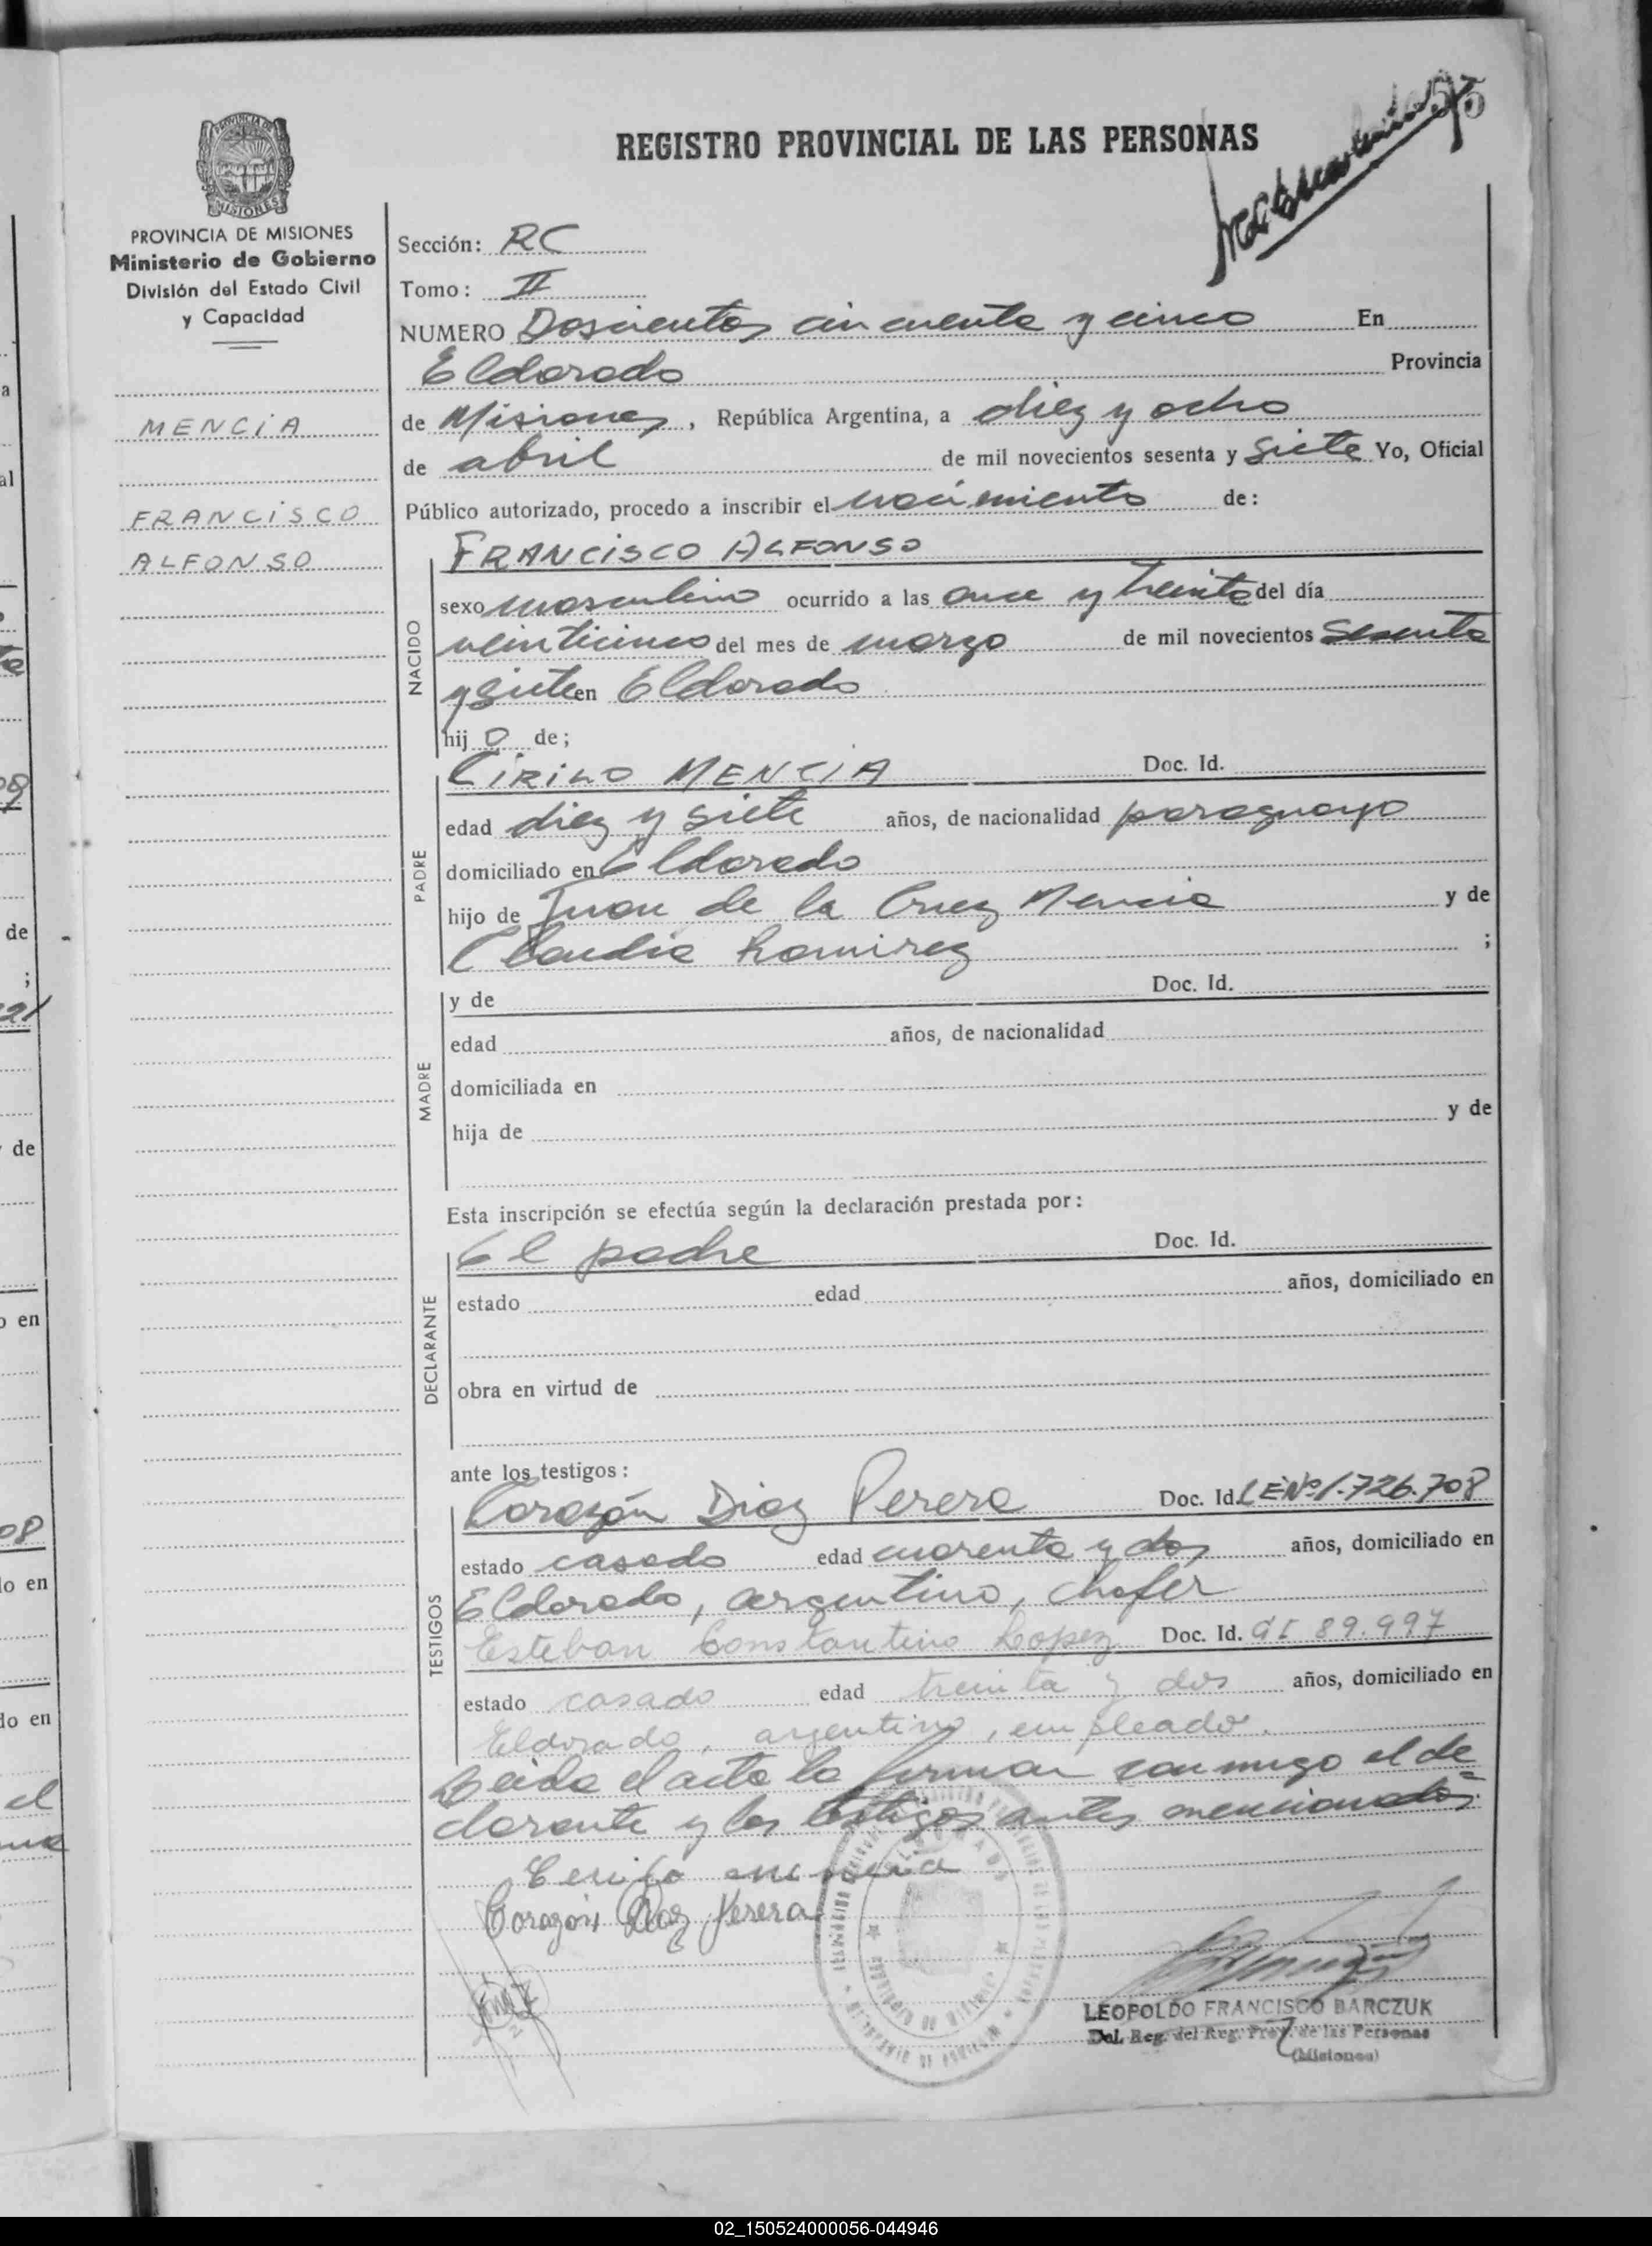 REGISTRO PROVINCIAL DE LAS PERSONAS
MISIONES
PROVINCIA DE MISIONES
Ministerio de Gobierno
División del Estado Civil
y Capacidad
MENCIA
FRANCISCO
ALFONSO
Sección: RC
Tomo: II
NUMERO Doscientos cincuenta y cinco En
Eldorado Provincia
de Misiones, República Argentina, a diez y ocho
de abril de mil novecientos sesenta y siete Yo, Oficial
Público autorizado, procedo a inscribir el nacimiento de:
NACIDO
FRANCISCO ALFONSO
sexo masculino ocurrido a las once y treinta del día
veinticinco del mes de marzo de mil novecientos sesenta
y siete en Eldorado
hij o de;
PADRE
CIRILO MENCIA Doc. Id.
edad diez y siete años, de nacionalidad paraguayo
domiciliado en Eldorado
hijo de Juan de la Cruz Mencia y de
Claudia Ramirez ;
MADRE
y de Doc. Id.
edad años, de nacionalidad
domiciliada en
hija de y de
Esta inscripción se efectúa según la declaración prestada por:
DECLARANTE
El padre Doc. Id.
estado edad años, domiciliado en
obra en virtud de
ante los testigos:
TESTIGOS
Corazón Diaz Perera Doc. Id. LE Nº 1.726.708
estado casado edad cuarenta y dos años, domiciliado en
Eldorado, argentino, chofer
Esteban Constantino Lopez Doc. Id. CI 89.997
estado casado edad treinta y dos años, domiciliado en
Eldorado, argentino, empleado.
Leida el acta la firman conmigo el de=
clarante y los testigos antes mencionados
Corazón Diaz Perera
LEOPOLDO FRANCISCO BARCZUK
Del. Reg. del Reg. Prov. de las Personas
(Misiones)
02_150524000056-044946